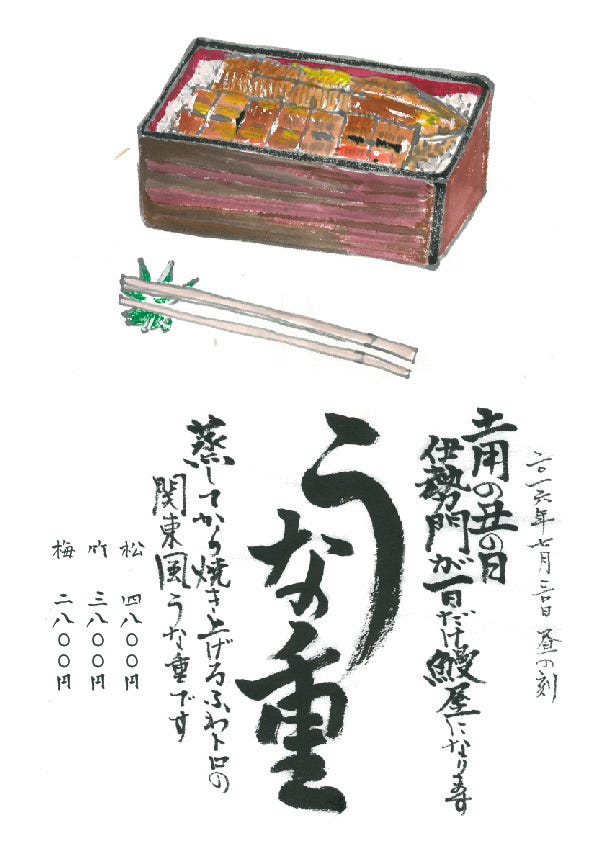 二〇一六年七月三〇日 昼の刻
土用の丑の日
伊勢門が一日だけ鰻屋になります
うな重
蒸してから焼き上げるふわトロの
関東風うな重です
松 四八〇〇円
竹 三八〇〇円
梅 二八〇〇円